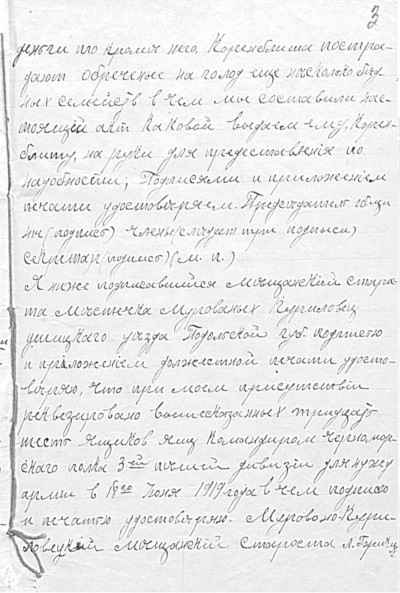 3
деньги что кромѣ него Коренблита постра-
дают обреченые на голод еще несколько бѣд-
ных семейств в чем мы составили нас-
тоящий акт каковой выдаем ему, Корен-
блиту, на руки для предоставления по
надобности, Подписями и приложением
печати удостоверяем. Председатель общи-
ны (подпись) члены (следует три подписи)
секретар (подпись) (м. п.)
Я ниже подписавшийся Мещанский старос-
та Местечка Мурованых Куриловец
ушицкаго уезда Подольской губ. подписью
и приложением должностной печати удосто-
веряю, что при моем присутствии
реквезировано вышесказанных тридцать
шесть ящиков яиц Командиром черномор-
скаго полка 3ей пешей дивизии для нужд
армии в 18го Июня 1919 года в чем подписью
и печатью удостоверяю. Муровано-Кури-
ловецкий Мещанский Староста